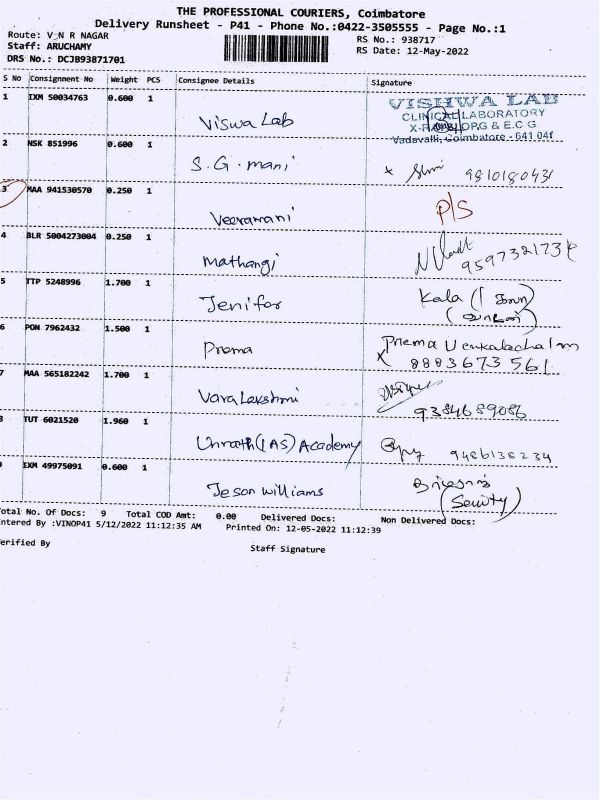 THE PROFESSIONAL COURIERS, Coimbatore
Delivery Runsheet - P41 - Phone No.:0422-3505555 - Page No.:1
Route: V_N R NAGAR
RS No.: 938717
Staff: ARUCHAMY
RS Date: 12-May-2022
DRS No.: DCJB93871701
S No Consignment No Weight PCS Consignee Details Signature
1 IXM 50034763 0.600 1 Viswa Lab
VISHWA LAB
CLINICAL LABORATORY
& E.C.G
Vadavalli, Coimbatore - 641 041
2 NSK 851996 0.600 1 S.G.mani 9810180431
3 MAA 941530570 0.250 1 Veeramani P/S
4 BLR 5004273004 0.250 1 Mathangi
5 TTP 5248996 1.700 1 Jenifar Kala
6 PON 7962432 1.500 1 Prema Prema Venkalachalam
8883673561
7 MAA 565182242 1.700 1 Varalakshmi 9384689086
TUT 6021520 1.960 1 Unnath(IAS) Academy 9486138234
IXM 49975091 0.600 1 Jeson Williams
(Seurity)
otal No. Of Docs: 9 Total COD Amt: 0.00 Delivered Docs: Non Delivered Docs:
ntered By :VINOP41 5/12/2022 11:12:35 AM Printed On: 12-05-2022 11:12:39
erified By Staff Signature